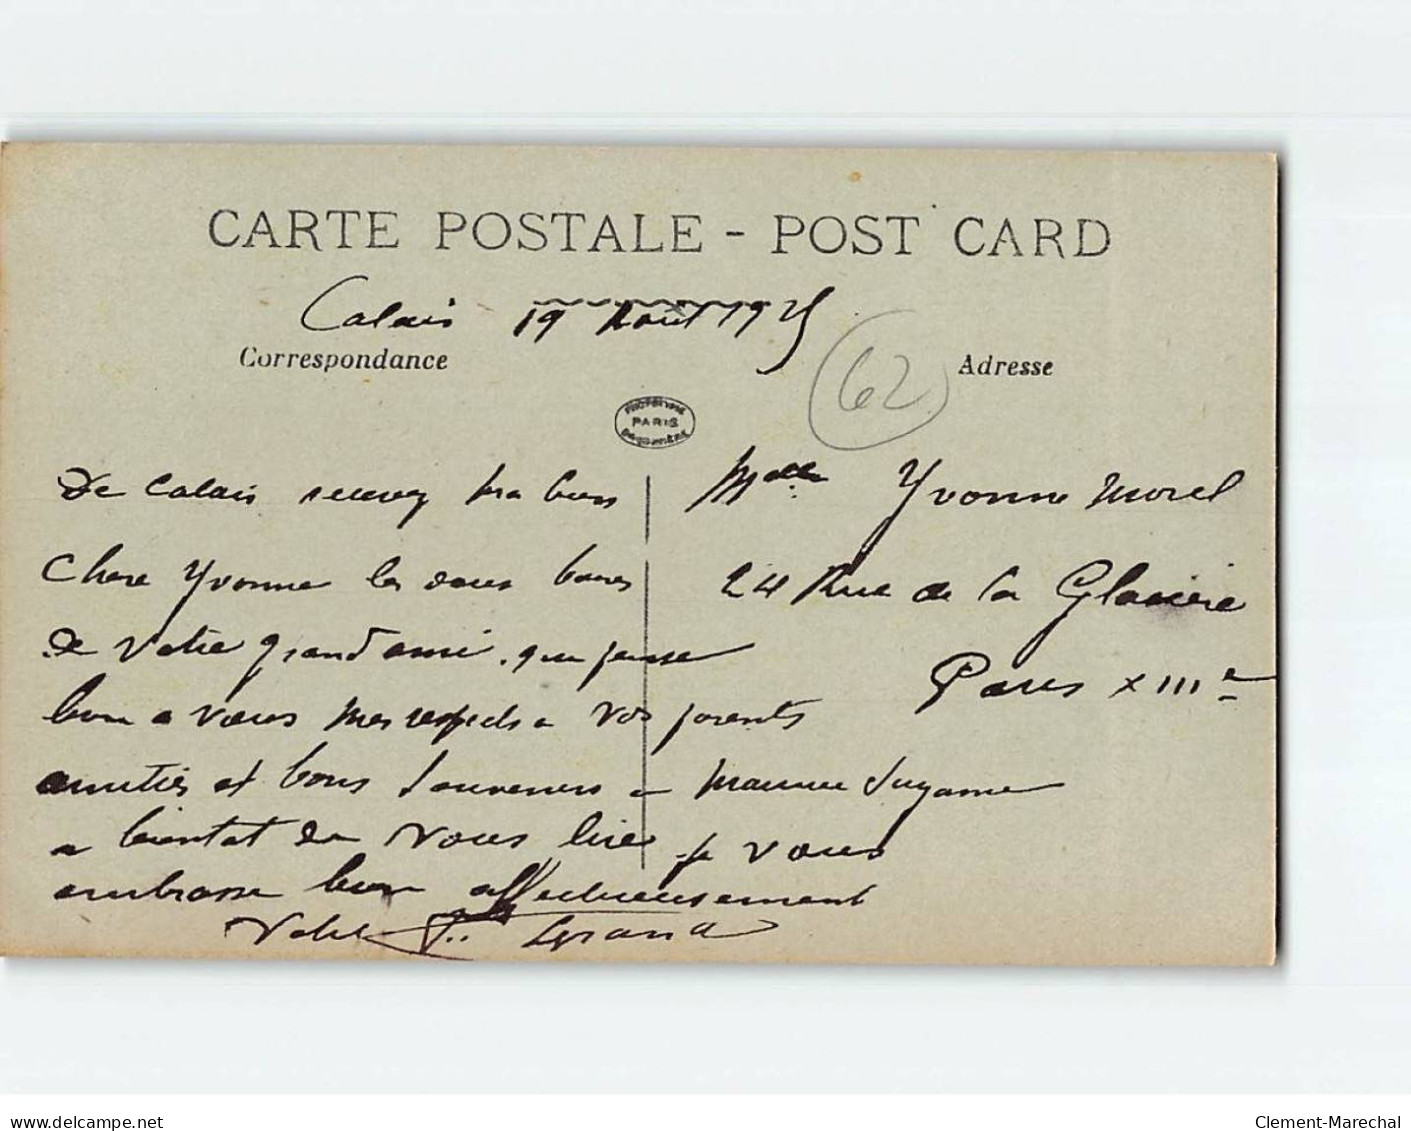 CARTE POSTALE - POST CARD
Calais 19 Aout 1925
Correspondance
Adresse
62
PARIS
De Calais recevez ma bien
Chere Yvonne les doux baisers
de votre grand ami. qui pense
bien a vous mes respects a vos parents
amitiés et bons souvenirs a Maurice Suzanne
a bientot de vous lire je vous
embrasse bien affectueusement
Votre Legrand
Mdelle Yvonne Morel
24 Rue de la Glacière
Paris XIIIe
delcampe.net
Clement-Marechal